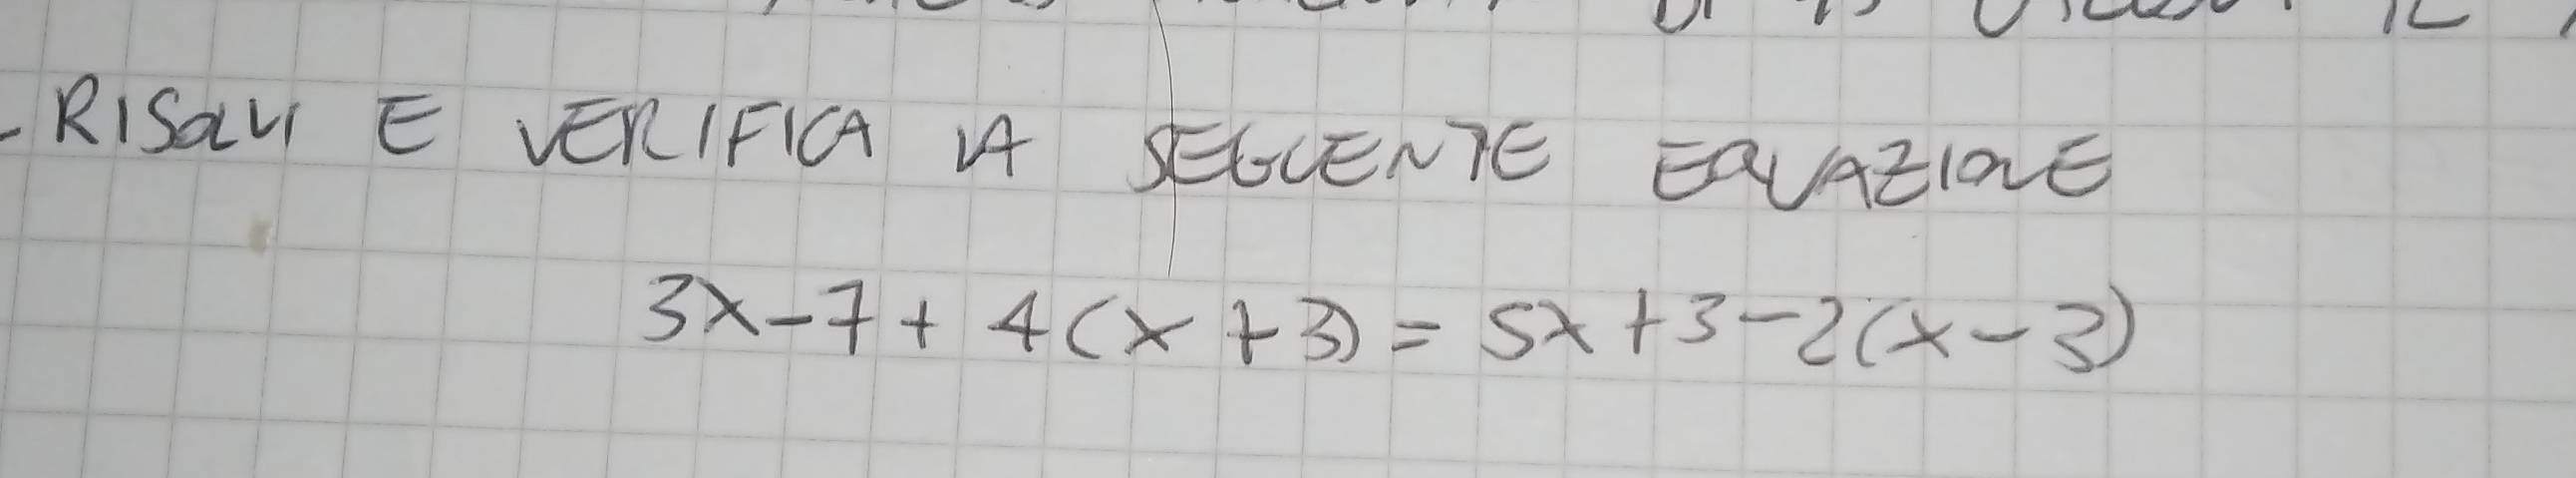 DI
IL
- RISOLVI E VERIFICA LA SEGUENTE EQUAZIONE
3x-7+4(x+3)=5x+3-2(x-3)